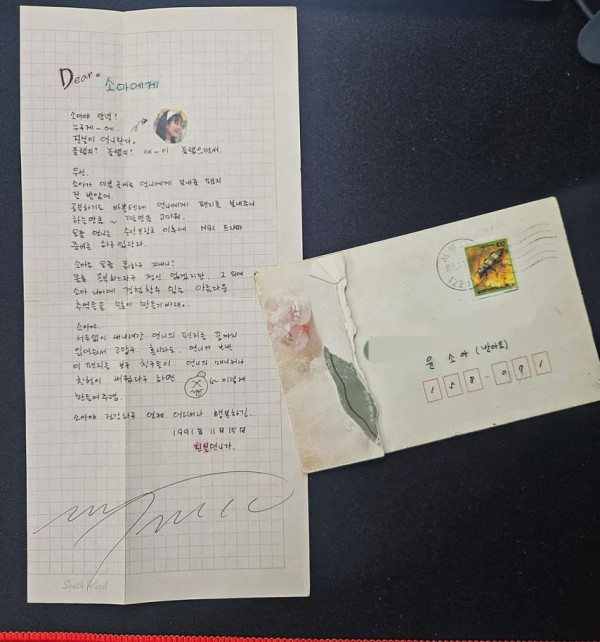 Dear. 소아에게
소아야 안녕?
누구게~에
진실이 언니란다.
놀랬지? 놀랬지? 에~이 놀랬으면서.
우선,
소아가 예쁜 글씨로 언니에게 보내준 편지
잘 받았어
공부하기도 바쁠텐데 언니에게 편지를 보내주니
하는만큼 ~ 만큼 고마워.
요즘 언니는 이후에 MBC 드라마
준비를 하구 있단다.
소아는 요즘 뭘하구 지내니?
물론 공부하느라구 정신 없겠지만, 그 외에
소아 나이에 경험할수 있는 아름다운
추억들을 많이 만들기 바래..
소아야.
언니의 편지를 끝까지
읽어줘서 고맙구. 혹시라도. 언니가 보낸
이 편지를 보구 친구들이. 언니의 매니저나
친척이 써줬다구 하면 이렇게
만들어 주렴.
소아야 건강하구 언제 어디서나 행복하길...
1991年 11月 15日
언니가.
South Wind
윤 소아 (받아요)
158-091